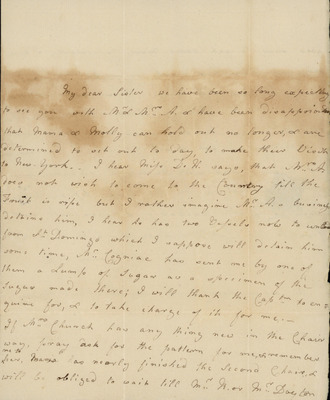 My dear Sister we have been so long expecting
to see you with Mr & Mrs A. & have been disappointed
that Mama & Molly can hold out no longer, & are
determined to set out to day to make their Visits
to New York. I hear Miss D. H. says, that Mrs A.
does not wish to come to the Country till the
Fruit is ripe but I rather imagine Mr A.s business
detains him, I hear he has two Vessels now to
from St Domingo which I suppose will detain him
some time, Mr Cogniac has sent me by one of
them a Lump of Sugar as a specimen of the
Sugar made there; I will thank the Captn to en=
quire for, & to take charge of it for me —
If Mrs Church has any thing new in the Chair
way, pray ask for the pattern for me, & remember
Mama has nearly finished the Second Chair, &
will be obliged to wait till Mrs W. or Mrs